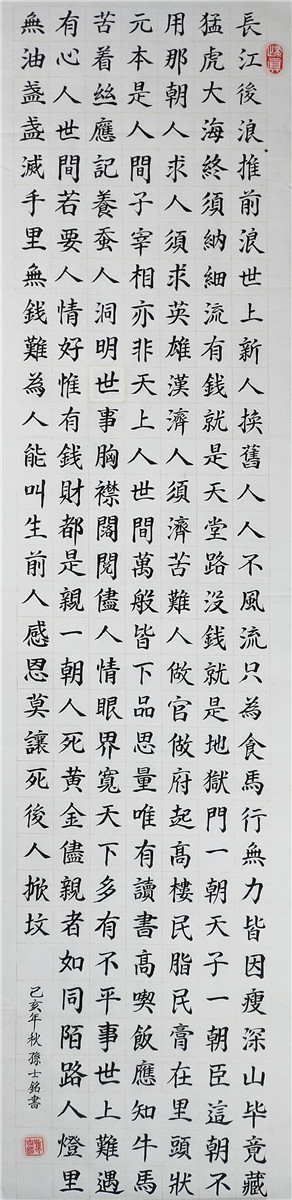 長江後浪推前浪世上新人換舊人人不風流只為食馬行無力皆因瘦深山毕竟藏
猛虎大海終須納細流有錢就是天堂路没錢就是地獄門一朝天子一朝臣這朝不
用那朝人求人須求英雄漢濟人須濟苦難人做官做府起高樓民脂民膏在里頭狀
元本是人間子宰相亦非天上人世間萬般皆下品思量唯有讀書高喫飯應知牛馬
苦着丝應記養蚕人洞明世事胸襟闊閱儘人情眼界寬天下多有不平事世上難遇
有心人世間若要人情好惟有錢財都是親一朝人死黄金儘親者如同陌路人燈里
無油盏盏滅手里無錢難為人能叫生前人感恩莫讓死後人掀坟
己亥年秋孫士銘書